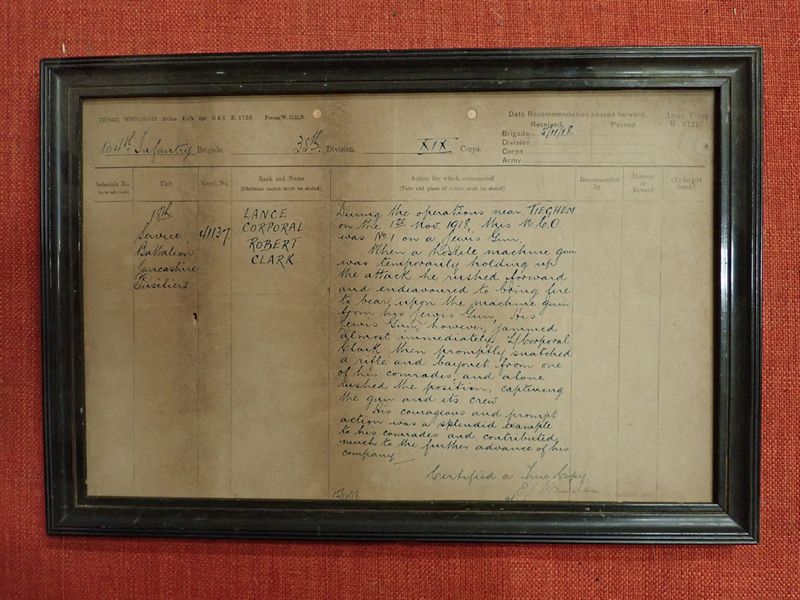 Date Recommendation passed forward.
Army Form
W. 3121.
Received. Passed
104th Infantry Brigade. 35th Division. XIX Corps.
Brigade 5/11/18.
Division
Corps
Army
Schedule No. Unit Regtl. No. Rank and Name Action for which commended Recommended by Honour or Reward (To be left blank)
(Christian names must be stated) (Date and place of action must be stated)
18th
Service
Battalion
Lancashire
Fusiliers
41137
LANCE
CORPORAL
ROBERT
CLARK
During the operations near TIEGHEM
on the 1st Nov. 1918, this N.C.O.
was No 1 on a Lewis Gun.
When a hostile machine gun
was temporarily holding up
the attack he rushed forward
and endeavoured to bring fire
to bear upon the machine gun
from his Lewis Gun. His
Lewis Gun, however, jammed
almost immediately. L/Corporal
Clark then promptly snatched
a rifle and bayonet from one
of his comrades and alone
rushed the position, capturing
the gun and its crew
His courageous and prompt
action was a splendid example
to his comrades and contributed
much to the further advance of his
company
Certified a True Copy